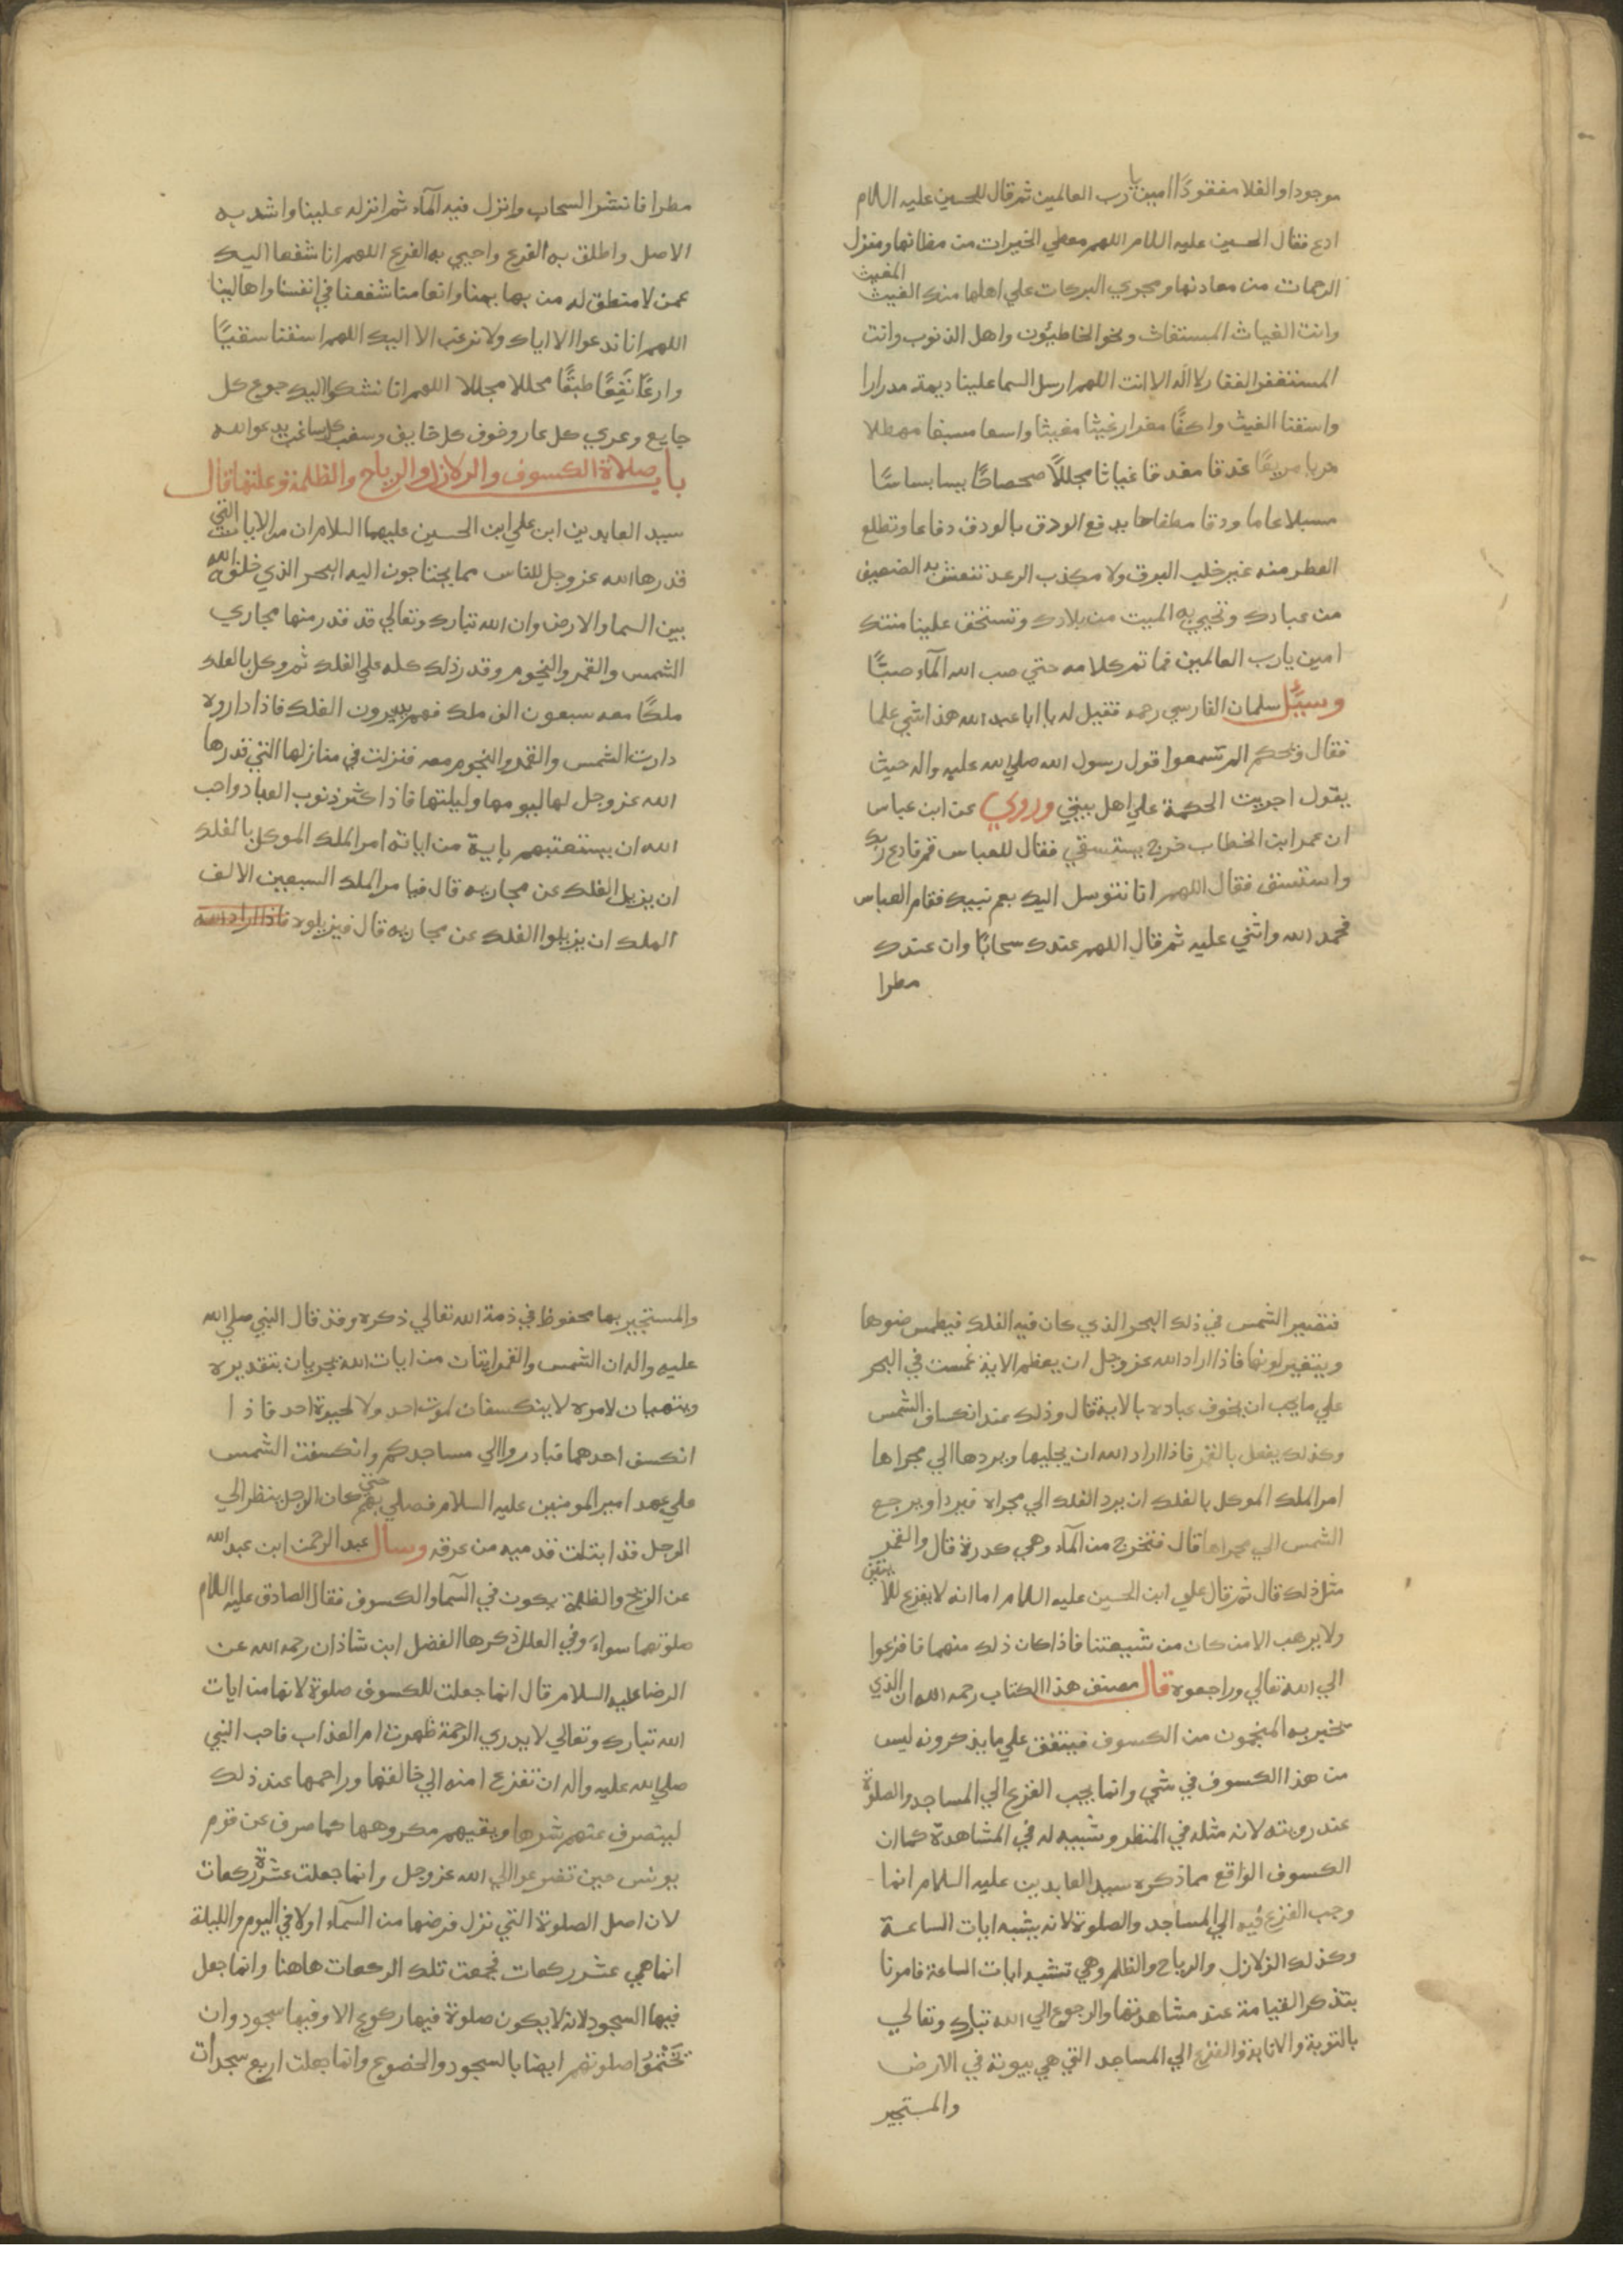 موجودا والغلا مفقودًا امين يا رب العالمين ثم قال للحسين عليه السلام
ادع فقال الحسين عليه السلام اللهم معطي الخيرات من مظانها ومنزل
الرحمات من معادنها ومجري البركات علي اهلها منك الغيث المغيث
وانت الغياث المستغاث ونحن الخاطيؤن واهل الذنوب وانت
المستغفر الغفار لا اله الا انت اللهم ارسل السما علينا ديمة مدرارا
واسقنا الغيث واكفًا مغزارا غيثا مغيثا واسعا مسبغا مهطلا
مريا مريعًا غدقا مغدقا غياثا مجللًا صحصاحًا بسا بساسًا
مسبلا عاما ودقا مطفاحا يدفع الودق بالودق دفاعا وتطلع
القطر منه غير خلب البرق ولا مكذب الرعد تنعش به الضعيف
من عبادك وتحيي به الميت من بلادك وتستحق علينا مننك
امين يا رب العالمين فما تم كلامه حتي صب الله المآء صبًّا
وسئل سلمان الفارسي رحمه فقيل له يا ابا عبد الله هذا شي علما
فقال ويحكم الم تسمعوا قول رسول الله صلي الله عليه واله حيث
يقول اجريت الحكمة علي اهل بيتي وروي عن ابن عباس
ان عمر ابن الخطاب خرج يستسقي فقال للعباس قم فادع ربك
واستسق فقال اللهم انا نتوسل اليك بعم نبيك فقام العباس
فحمد الله واثني عليه ثم قال اللهم عندك سحابًا وان عندك
مطرا
مطرا فانشر السحاب وانزل فيه المآء ثم انزله علينا واشدد به
الاصل واطلق به الفرع واحيي به الفرع اللهم انا شفعا اليك
عمن لا منطق له من بهايمنا وانعامنا شفعنا في انفسنا واهالينا
اللهم انا ندعوا الا اياك ولا نرغب الا اليك اللهم اسقنا سقيًا
وادعًا نَفِعًا طبقًا مجللا مجللا اللهم انا نشكوا اليك جوع كل
جايع وعري كل عار وخوف كل خايف وسغب كل ساغب يدعوا الله
باب صلاة الكسوف والزلازل والرياح والظلمة وعلتها قال
سيد العابدين ابن علي ابن الحسين عليهما السلام ان من الايات التي
قدرها الله عز وجل للناس مما يحتاجون اليه البحر الذي خلقه الله
بين السما والارض وان الله تبارك وتعالي قد قدر منها مجاري
الشمس والقمر والنجوم وقدر ذلك كله علي الفلك ثم وكل بالفلك
ملكًا معه سبعون الف ملك فهم يديرون الفلك فاذا داروه
دارت الشمس والقمر والنجوم معه فنزلت في منازلها التي قدرها
الله عز وجل لها ليومها وليلتها فاذا كثر ذنوب العباد واحب
الله ان يستعتبهم باية من اياته امر الملك الموكل بالفلك
ان يزيل الفلك عن مجاريه قال فيامر الملك السبعين الالف
الملك ان يزيلوا الفلك عن مجاريه قال فيزيلوه فاذا اراد الله
فتصير الشمس في ذلك البحر الذي كان فيه الفلك فيطمس ضوها
ويتغير لونها فاذا اراد الله عز وجل ان يعظم الاية غمست في البحر
علي ما يحب ان يخوف عباده بالاية قال وذلك عند انكساف الشمس
وكذلك يفعل بالقمر فاذا اراد الله ان يجليها ويردها الي مجراها
امر الملك الموكل بالفلك ان يرد الفلك الي مجراه فيرد ويرجع
الشمس الي مجراها قال فتخرج من المآء وهي كدرة قال والقمر
مثل ذلك قال ثم قال علي ابن الحسين عليه السلام اما انه لا يفزع للايتين
ولا يرهب الا من كان من شيعتنا فاذا كان ذلك منهما فافزعوا
الي الله تعالي وراجعوه قال مصنف هذا الكتاب رحمه الله ان الذي
يخبر به المنجمون من الكسوف فيتفق علي ما يذكرونه ليس
من هذا الكسوف في شي وانما يجب الفزع الي المساجد والصلوة
عند رويته لانه مثله في المنظر وشبيه له في المشاهدة كما ان
الكسوف الواقع مما ذكره سيد العابدين عليه السلام انما
وجب الفزع فيه الي المساجد والصلوة لانه يشبه ايات الساعة
وكذلك الزلازل والرياح والظلم وهي تشبه ايات الساعة فامرنا
بتذكر القيامة عند مشاهدتها والرجوع الي الله تبارك وتعالي
بالتوبة والانابة والفزع الي المساجد التي هي بيوته في الارض
والمستجير
والمستجير بها محفوظ في ذمة الله تعالي ذكره وقد قال النبي صلي الله
عليه واله ان الشمس والقمر ايتان من ايات الله يجريان بتقديره
وينتهيان لامره لا ينكسفان لموت احد ولا لحيوة احد فاذا
انكسف احدهما فبادروا الي مساجدكم وانكسفت الشمس
علي عهد امير المومنين عليه السلام فصلي بهم حتي كان الرجل ينظر الي
الرجل قد ابتلت قدميه من عرقه وسال عبد الرحمن ابن عبد الله
عن الريح والظلمة يكون في السمآء والكسوف فقال الصادق عليه السلام
صلوتهما سواء وفي العلل ذكرها الفضل ابن شاذان رحمه الله عن
الرضا عليه السلام قال انما جعلت للكسوف صلوة لانها من ايات
الله تبارك وتعالي لا يدري الرحمة ظهرت ام العذاب فاحب النبي
صلي الله عليه واله ان تفزع امته الي خالقها وراحمها عند ذلك
ليصرف عنهم شرها ويقيهم مكروهها كما صرف عن قوم
يونس حين تضرعوا الي الله عز وجل وانما جعلت عشرة ركعات
لان اصل الصلوة التي نزل فرضها من السمآء اولا في اليوم والليلة
انما هي عشر ركعات فجمعت تلك الركعات هاهنا وانما جعل
فيها السجود لانه لا يكون صلوة فيها ركوع الا وفيها سجود وان
يختموا صلوتهم ايضا بالسجود والخضوع وانما جعلت اربع سجدات